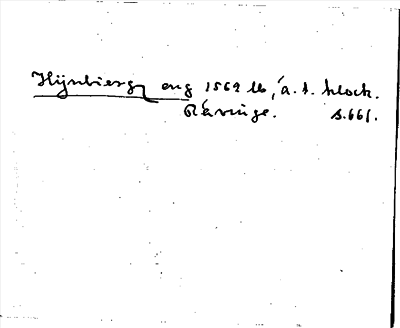 Hÿnbierg eng 1569 lb, á. t. klock.
Rävinge. s. 661.